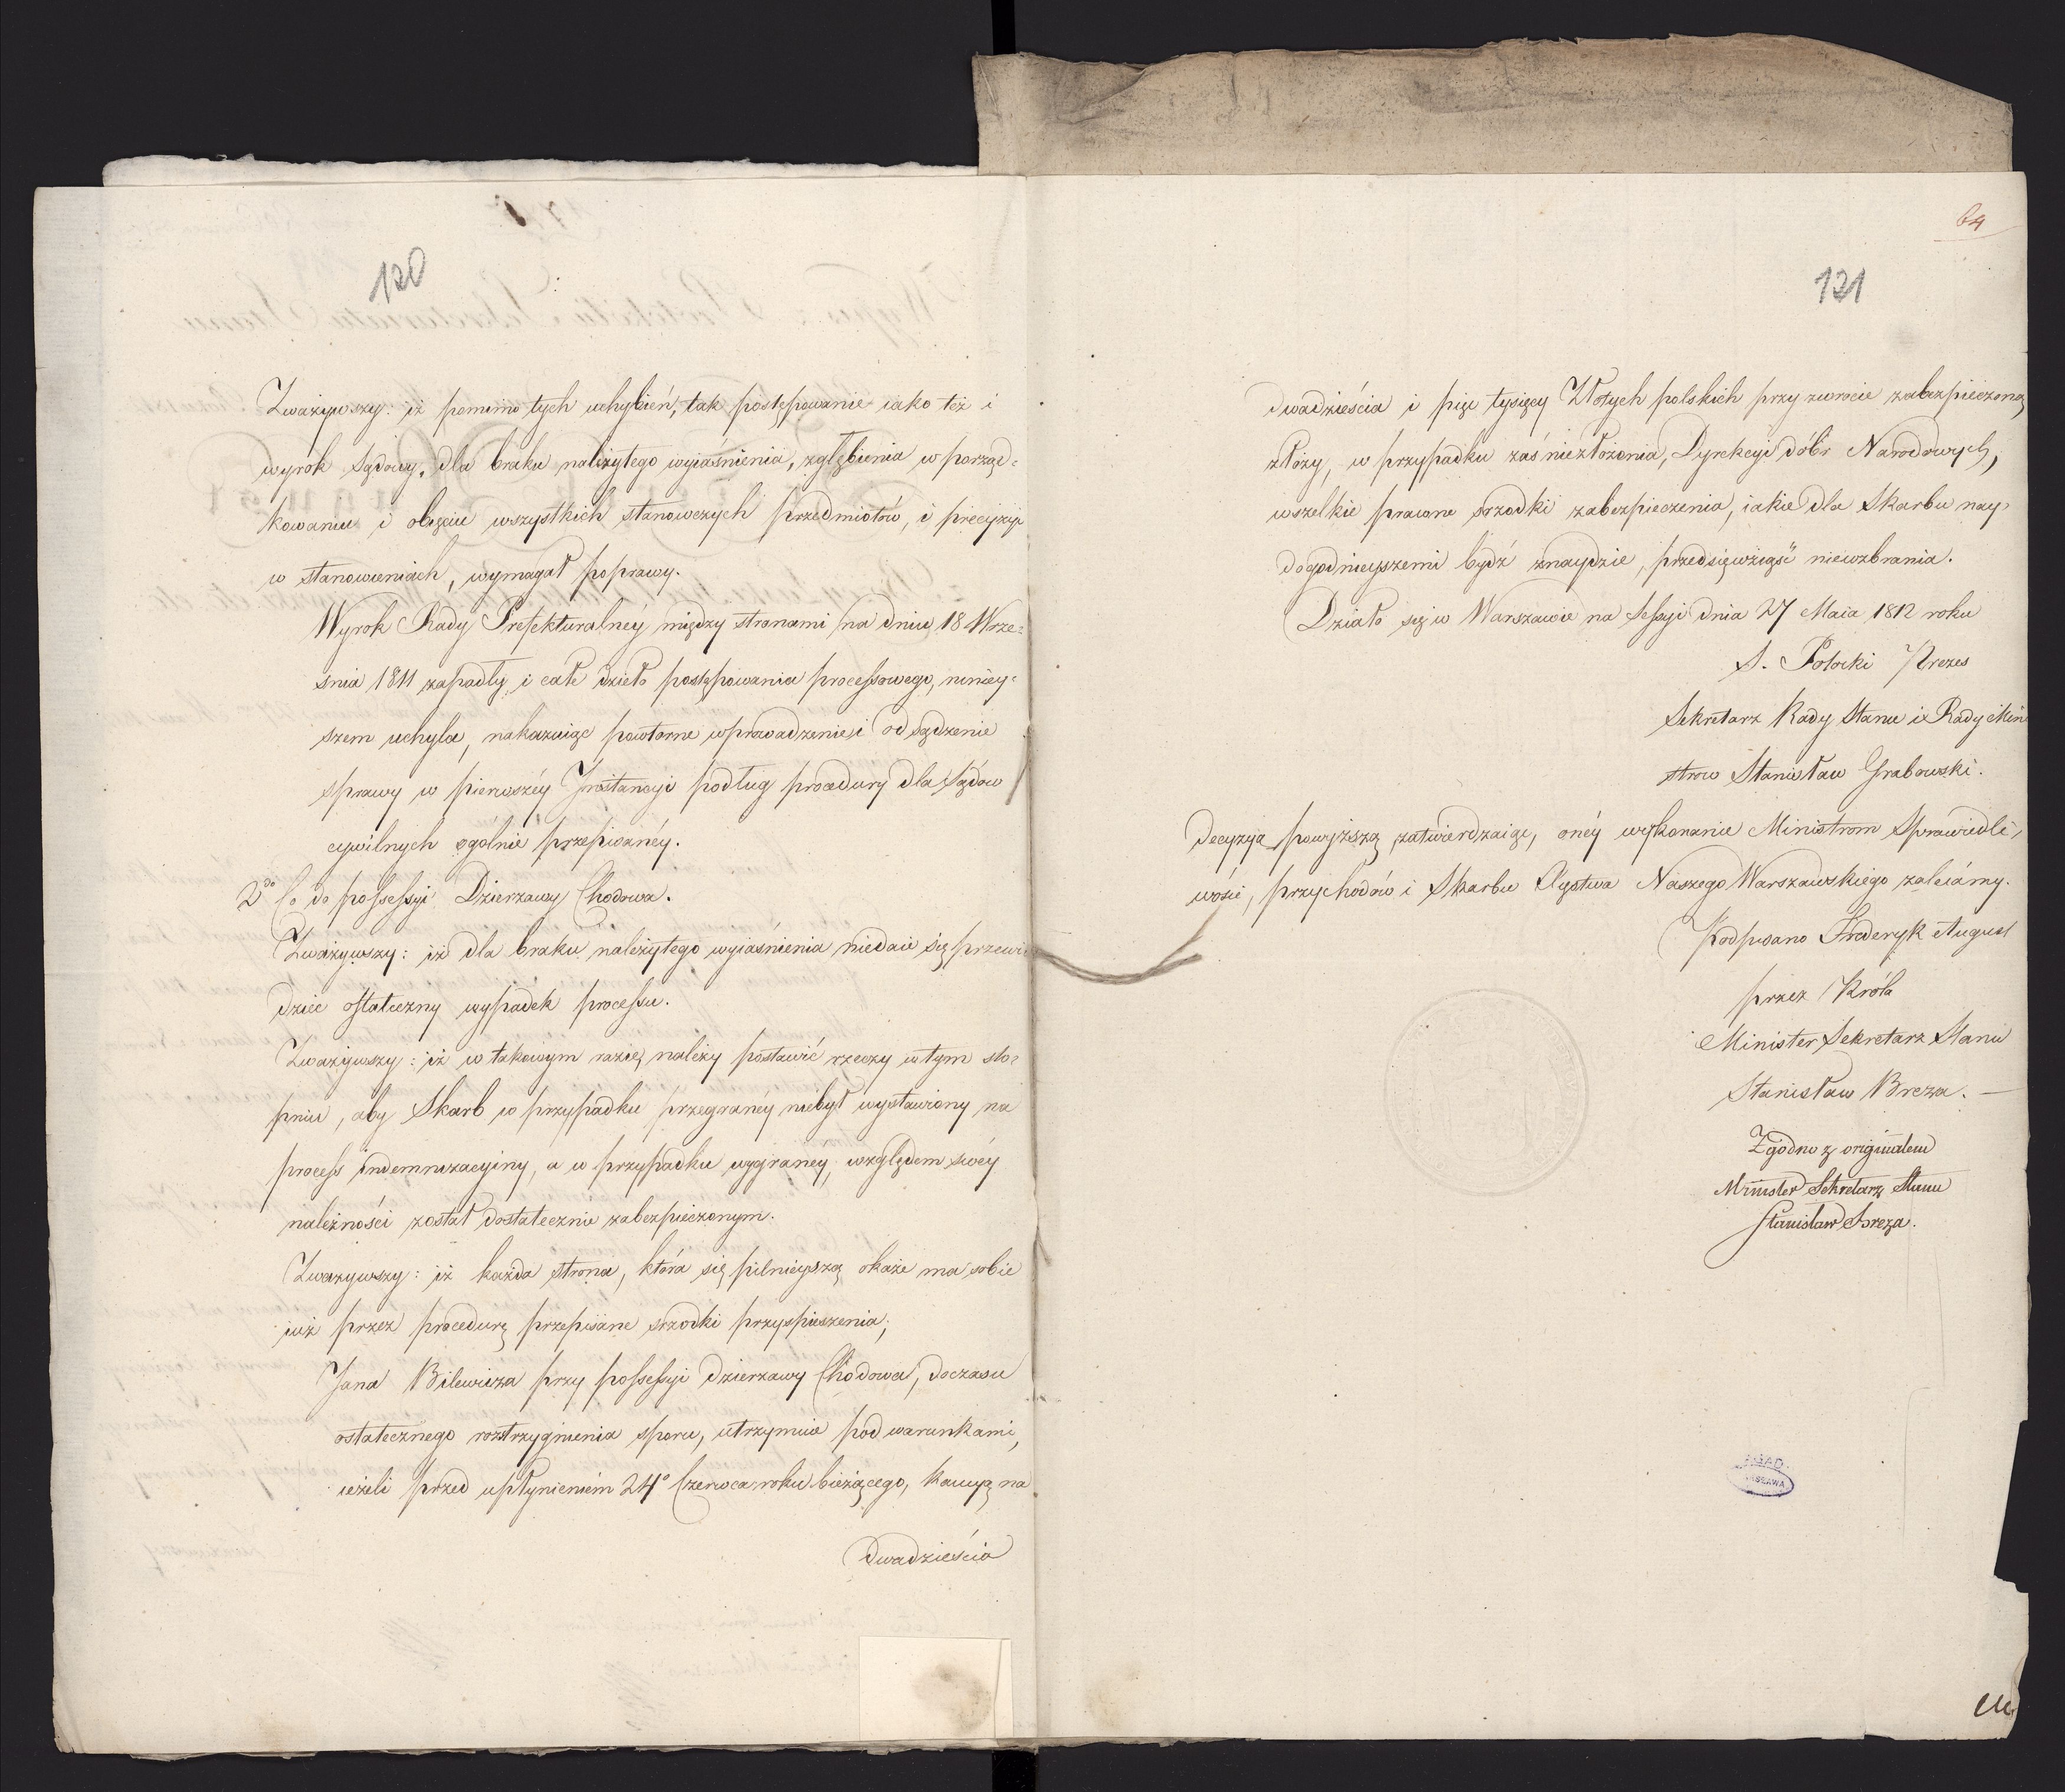 120
Zważywszy: iż pomimo tych uchybień, tak postępowanie iako też i
wyrok sądowy, dla braku należytego wyiaśnienia, zgłębienia w porząd-
kowaniu i obięciu wszystkich stanowczych przedmiotów, i precyzyi
w stanowieniach, wymagał poprawy.
Wyrok Rady Prefekturalnéy między stronami na dniu 18 Wrze-
śnia 1811 zapadły i całe dzieło postępowania processowego, ninięy-
szem uchyla, nakazuiąc powtorne wprowadzenie i odsądzenie
sprawy w pierwszéy Instancyi podług procedury dla sądów
cywilnych ogólnie przepisanéy.
2do Co do possessyi Dzierzawy Chodowa.
Zważywszy: iż dla braku należytego wyiaśnienia niedaie się przewi-
dziec ostateczny wypadek processu.
Zważywszy: iż w takowym razie, należy postawić rzeczy w tym sto-
pniu, aby Skarb w przypadku przegranéy niebył wystawiony na
process indemnizacyiny, a w przypadku wygranéy, względem swéy
należności został dostatecznie zabezpieczonym.
Zważywszy: iż każda strona, która się pilnieyszą okaże ma sobie
iuż przez procedurę przepisane srzodki przyspieszenia;
Jana Bilewicza przy possessyi dzierzawy Chodowa, do czasu
ostatecznego rozstrzygnienia sporu, utrzymuie pod warunkami,
ieżeli przed upłynieniem 24o Czerwca roku bieżącego, kaucyą na
Dwadzieścia
64
121
dwadzieścia i pięć tysięcy Złotych polskich przy zwrocie zabezpieczoną
złoży, w przypadku zaś niezłożenia, Dyrekcyi dóbr Narodowych,
wszelkie prawne srzodki zabezpieczenia, iakie dla Skarbu nay-
dogodnieyszemi bydź znaydzie, przedsięwziąść niewzbrania.
Działo się w Warszawie na Sessyi dnia 27 Maia 1812 roku
S. Potocki Prezes
Sekretarz Rady Stanu i Rady Mini
strow Stanisław Grabowski.
Decyzyą powyższą zatwierdzaiąc, onéy wykonanie Ministrom Sprawiedli-
wości, przychodów i Skarbu Xięstwa Naszego Warszawskiego zalecámy.
Podpisano Fryderyk August
przez Króla
Minister Sekretarz Stanu
Stanisław Breza. —
Zgodno z originałem
Minister Sekretarz Stanu
Stanisław Breza.
AGAD